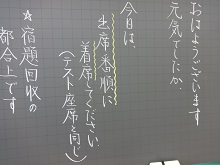 おはようございます
元気でしたか
今日は、
出席番順に
着席してください
(テスト座席と同じ)
☆宿題回収の
都合上です